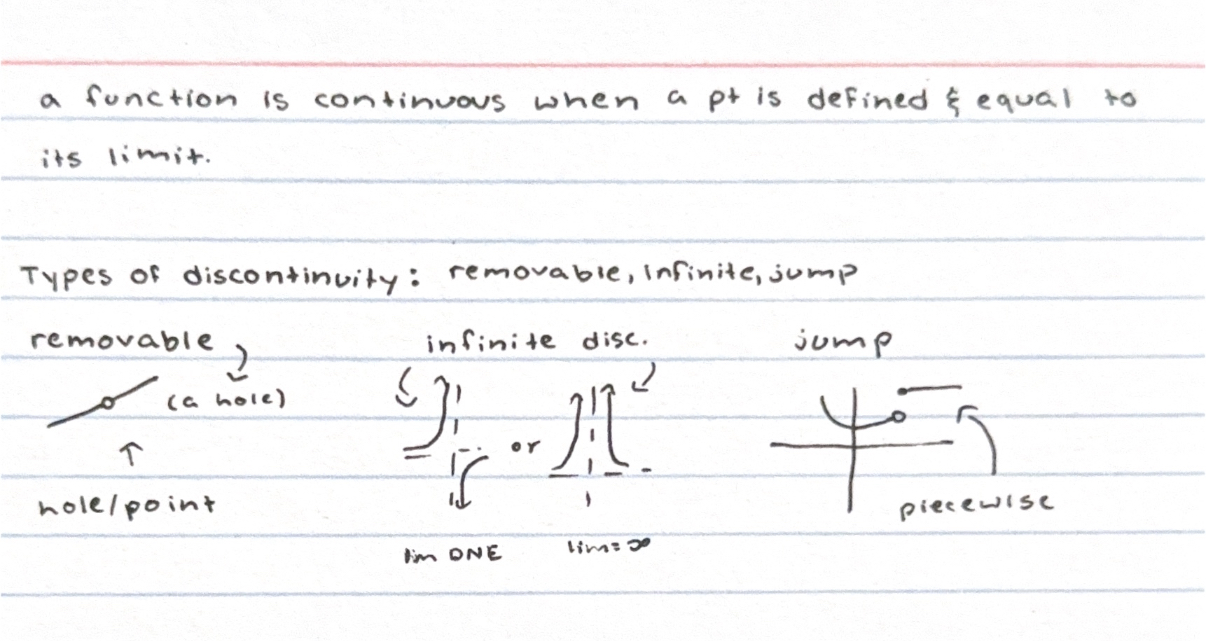 a function is continuous when a pt is defined & equal to
its limit.
Types of discontinuity: removable, infinite, jump
removable infinite disc. jump
(a hole)
or
hole/point piecewise
lim DNE lim=∞